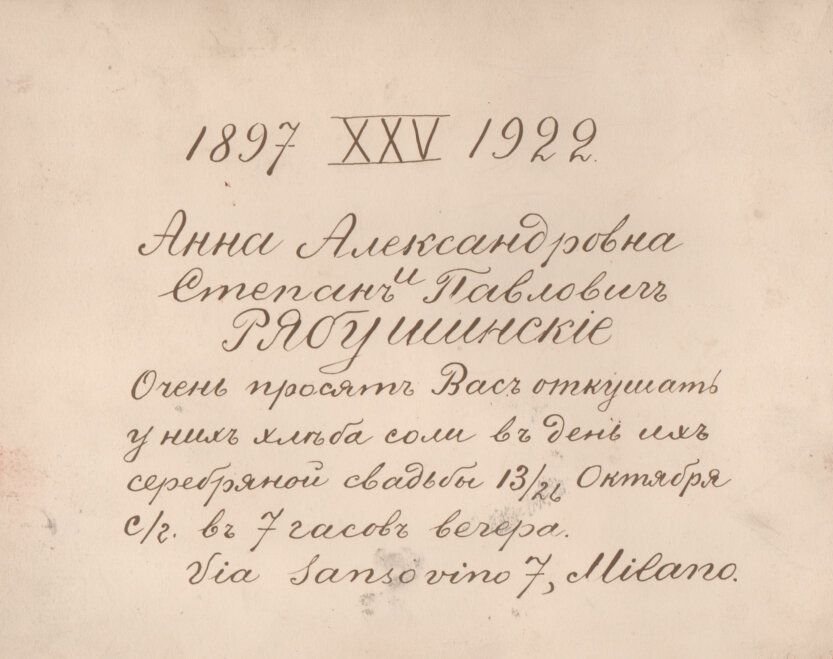 1897 XXV 1922.
Анна Александровна
и
Степанъ Павловичъ
РЯбушинскіе
Очень просятъ Васъ откушать
у нихъ хлѣба соли въ день ихъ
серебряной свадьбы 13/26 Октября
с/г. въ 7 часовъ вечера.
Via Sansovino 7, Milano.